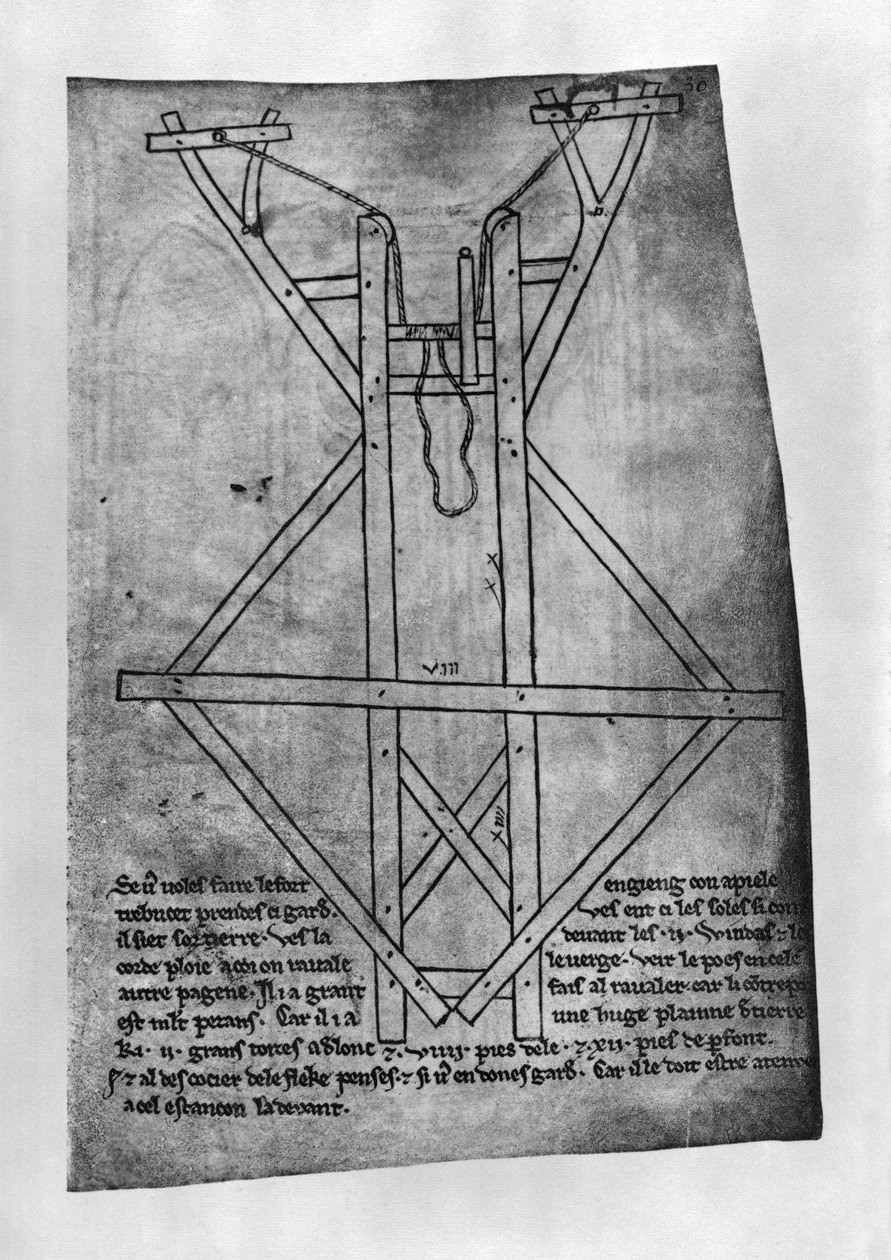 30
v.iii
xiii
Se ũ uoles faire lefort engieng con apiele
trebucet prendes ci gard. ves ent ci les soles si com
il siet sor tierre. ves la deuant les .ii. windas ⁊ le
corde ploie a coi on rauale leuerge. veir le poes en cele
autre pagene. Il i a grant fais al raualer. car li cõtrepo
est mlt pezans. Car il i a une huge plainne d̃ tierre
Ki .ii. grans toizes a d̃ lonc ⁊ .viiii. pies de le. ⁊ .xii. pies de pfont.
⁊ al descocier dele fleke penses. ⁊ si ũ en dones gard. Car il le doit estre atenue
a cel estancon la deuant.